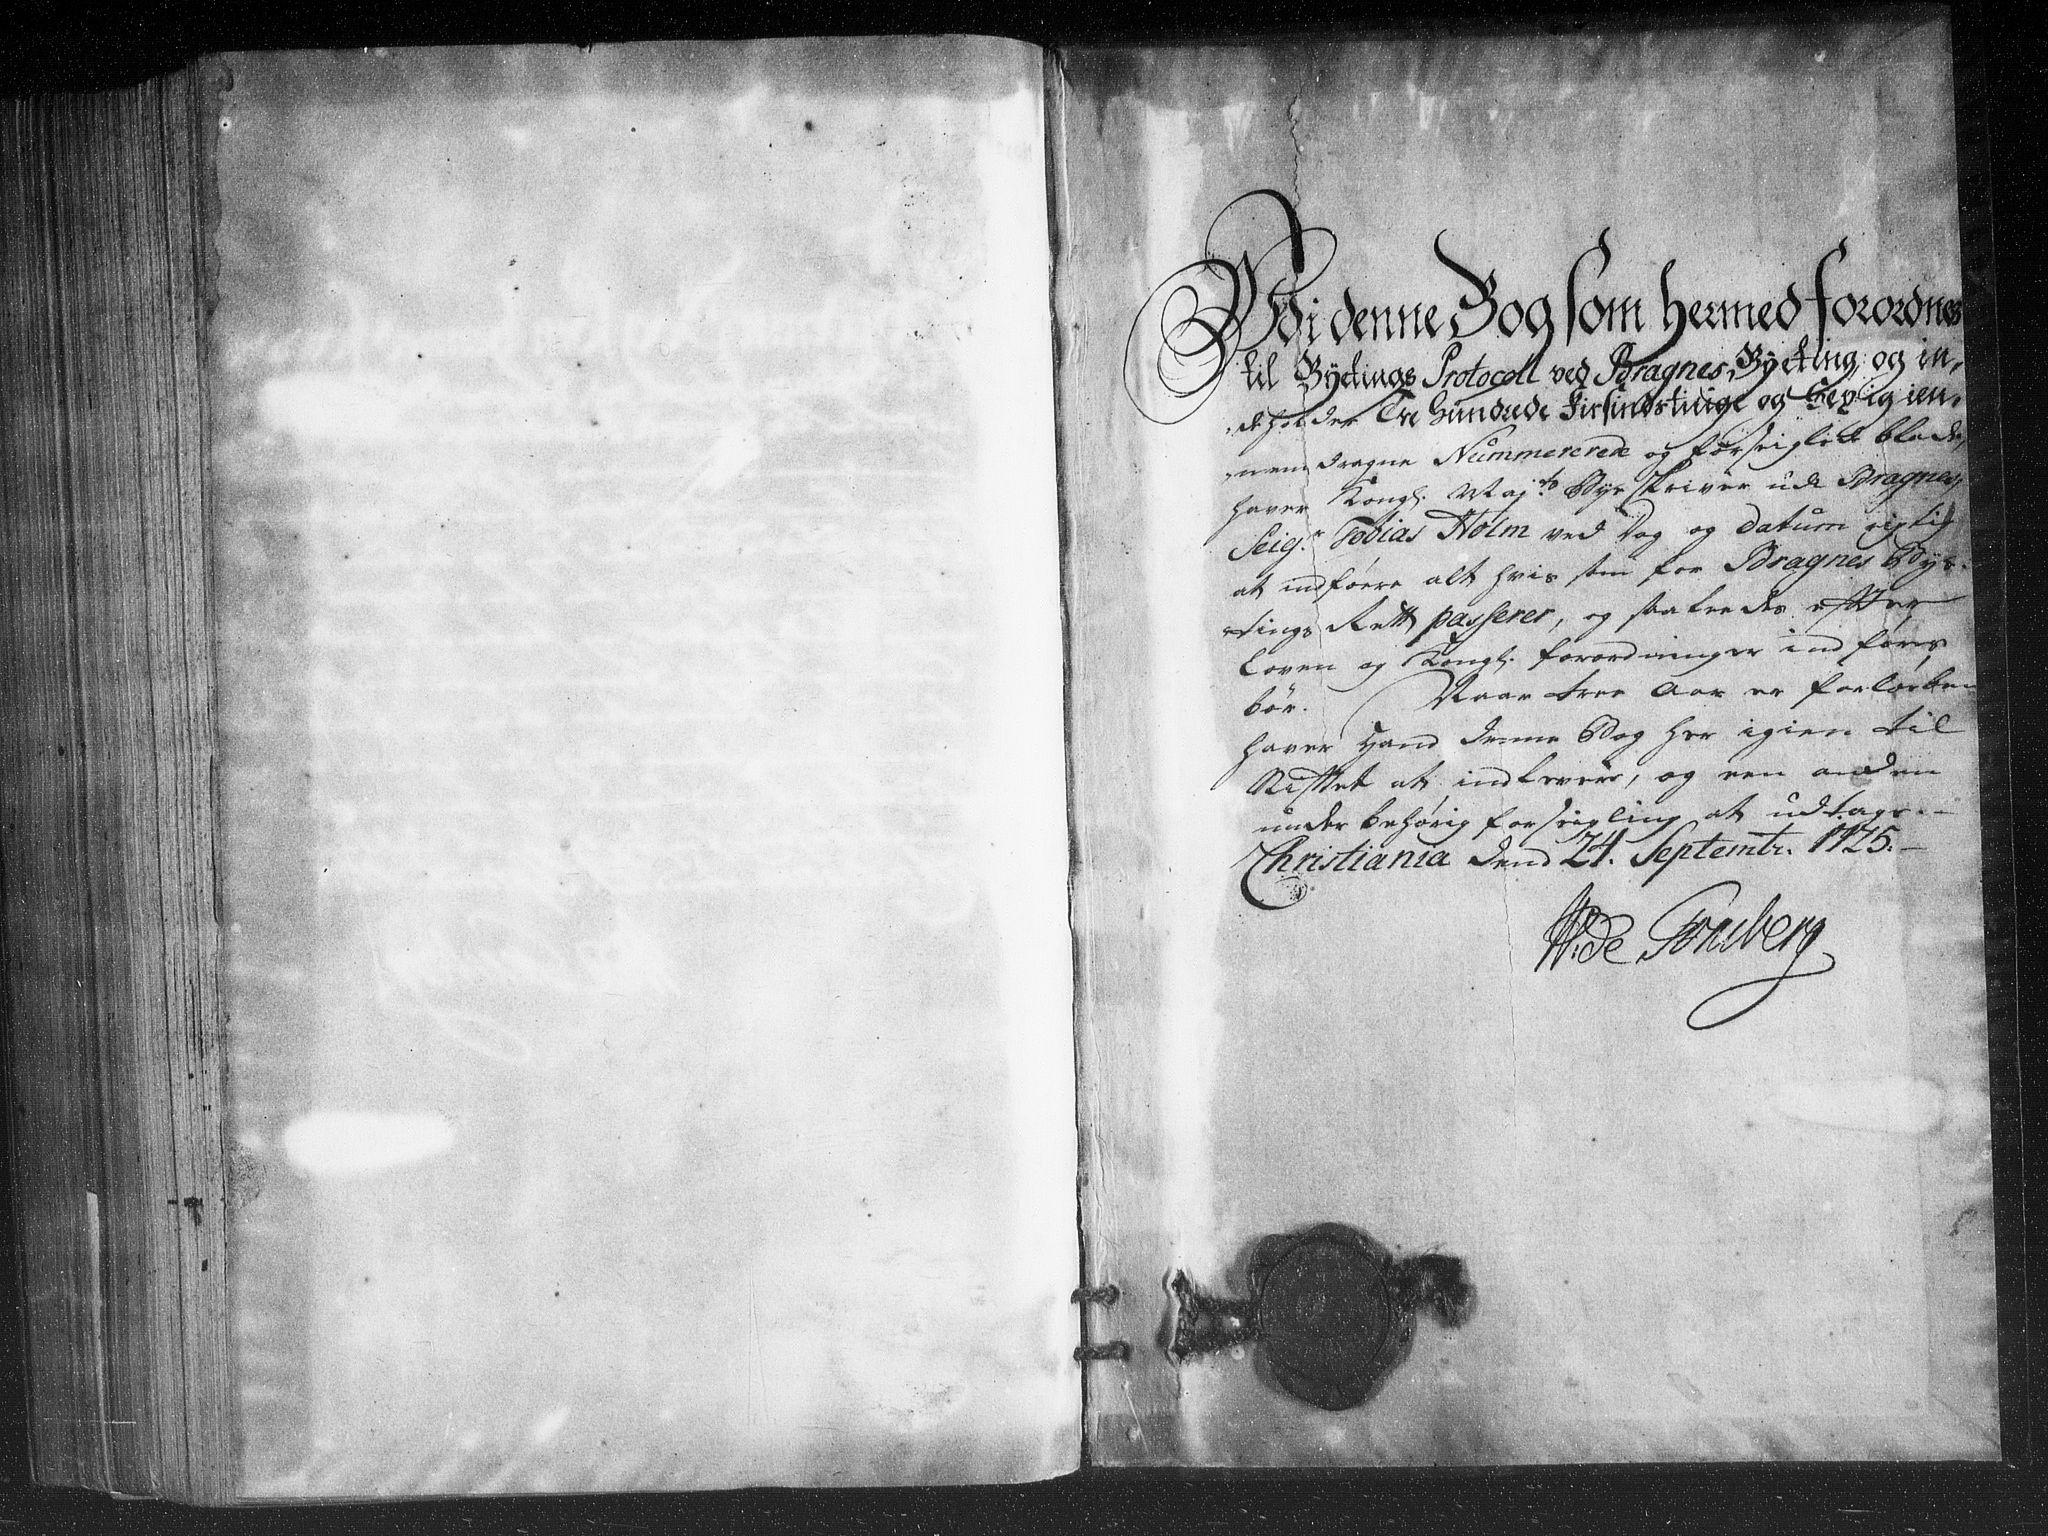 Udi denne Bog som hermed forordnes
til Byetings Protocoll ved Bragnes Byeting, og in-
deholder Tre Hundrede Firsindstiuge og Sex, igien-
nemdragne Nummererede og forseiglede blade,
haver Kongl. Maj.ts Bye Skriver udi Bragnes,
Seig.r Tobias Holm ved Dag og datum rigtig
at indføere alt hvis som for Bragnes Bye-
tings Rett passerer, og saaledes efter
Loven og Kongl. forordninger indføres
bør. Naar tree Aar er forløben
haver Hand denne Bog her igien til
Stiftet at indlevere, og een anden
under behørig forseigling at udtage.-
Christiania dend 24. Septembr. 1725.-
W: de Tonsberg